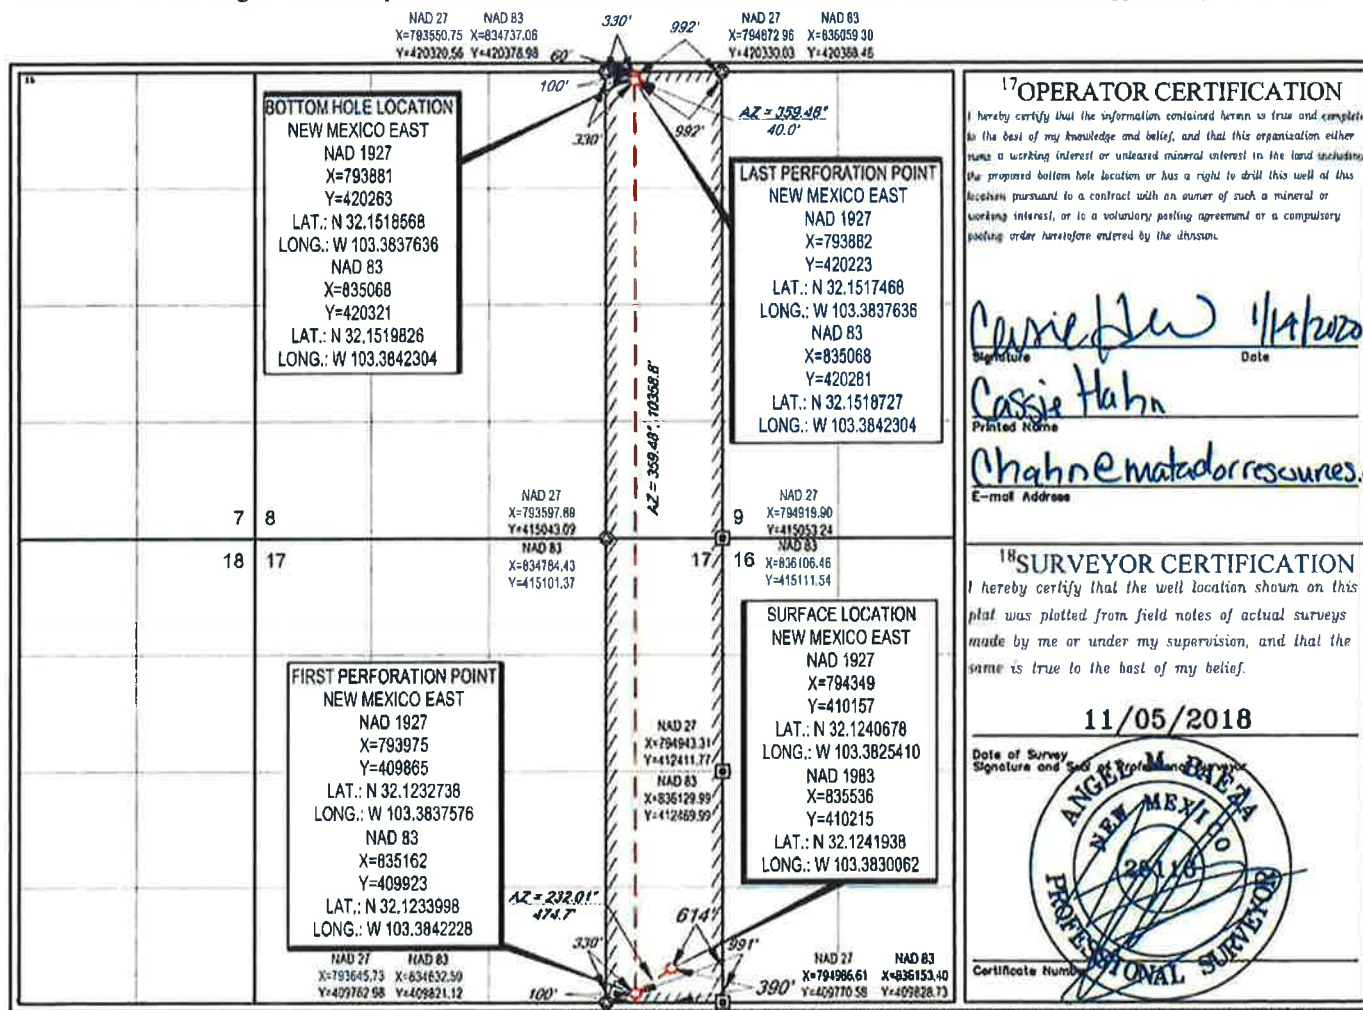 NAD 27 NAD 83
X=793550.75 X=834737.06
Y=420320.56 Y=420378.98
330'
992'
NAD 27 NAD 83
X=794872.96 X=836059.30
Y=420330.03 Y=420388.46
60'
100'
330'
992'
AZ = 359.48°
40.0'
16
BOTTOM HOLE LOCATION
NEW MEXICO EAST
NAD 1927
X=793881
Y=420263
LAT.: N 32.1518568
LONG.: W 103.3837636
NAD 83
X=835068
Y=420321
LAT.: N 32.1519826
LONG.: W 103.3842304
LAST PERFORATION POINT
NEW MEXICO EAST
NAD 1927
X=793882
Y=420223
LAT.: N 32.1517468
LONG.: W 103.3837636
NAD 83
X=835068
Y=420281
LAT.: N 32.1518727
LONG.: W 103.3842304
AZ = 359.48°, 10358.8'
NAD 27
X=793597.68
Y=415043.09
NAD 83
X=834784.43
Y=415101.37
NAD 27
X=794919.90
Y=415053.24
NAD 83
X=836106.46
Y=415111.54
7 8
9
18 17
17 16
FIRST PERFORATION POINT
NEW MEXICO EAST
NAD 1927
X=793975
Y=409865
LAT.: N 32.1232738
LONG.: W 103.3837576
NAD 83
X=835162
Y=409923
LAT.: N 32.1233998
LONG.: W 103.3842228
SURFACE LOCATION
NEW MEXICO EAST
NAD 1927
X=794349
Y=410157
LAT.: N 32.1240678
LONG.: W 103.3825410
NAD 1983
X=835536
Y=410215
LAT.: N 32.1241938
LONG.: W 103.3830062
NAD 27
X=794943.31
Y=412411.77
NAD 83
X=836129.99
Y=412469.99
AZ = 232.01°
474.7'
614'
330'
991'
100'
390'
NAD 27 NAD 83
X=793645.73 X=834832.50
Y=409762.98 Y=409821.12
NAD 27 NAD 83
X=794966.61 X=836153.40
Y=409770.58 Y=409828.73
17 OPERATOR CERTIFICATION
I hereby certify that the information contained herein is true and complete
to the best of my knowledge and belief, and that this organization either
owns a working interest or unleased mineral interest in the land including
the proposed bottom hole location or has a right to drill this well at this
location pursuant to a contract with an owner of such a mineral or
working interest, or to a voluntary pooling agreement or a compulsory
pooling order heretofore entered by the division.
1/14/2020
Signature Date
Cassie Hahn
Printed Name
Chahn@matadorresources.
E-mail Address
18 SURVEYOR CERTIFICATION
I hereby certify that the well location shown on this
plat was plotted from field notes of actual surveys
made by me or under my supervision, and that the
same is true to the best of my belief.
11/05/2018
Date of Survey
Signature and Seal of Professional Surveyor
ANGEL M. BAEZA
NEW MEXICO
PROFESSIONAL SURVEYOR
Certificate Number